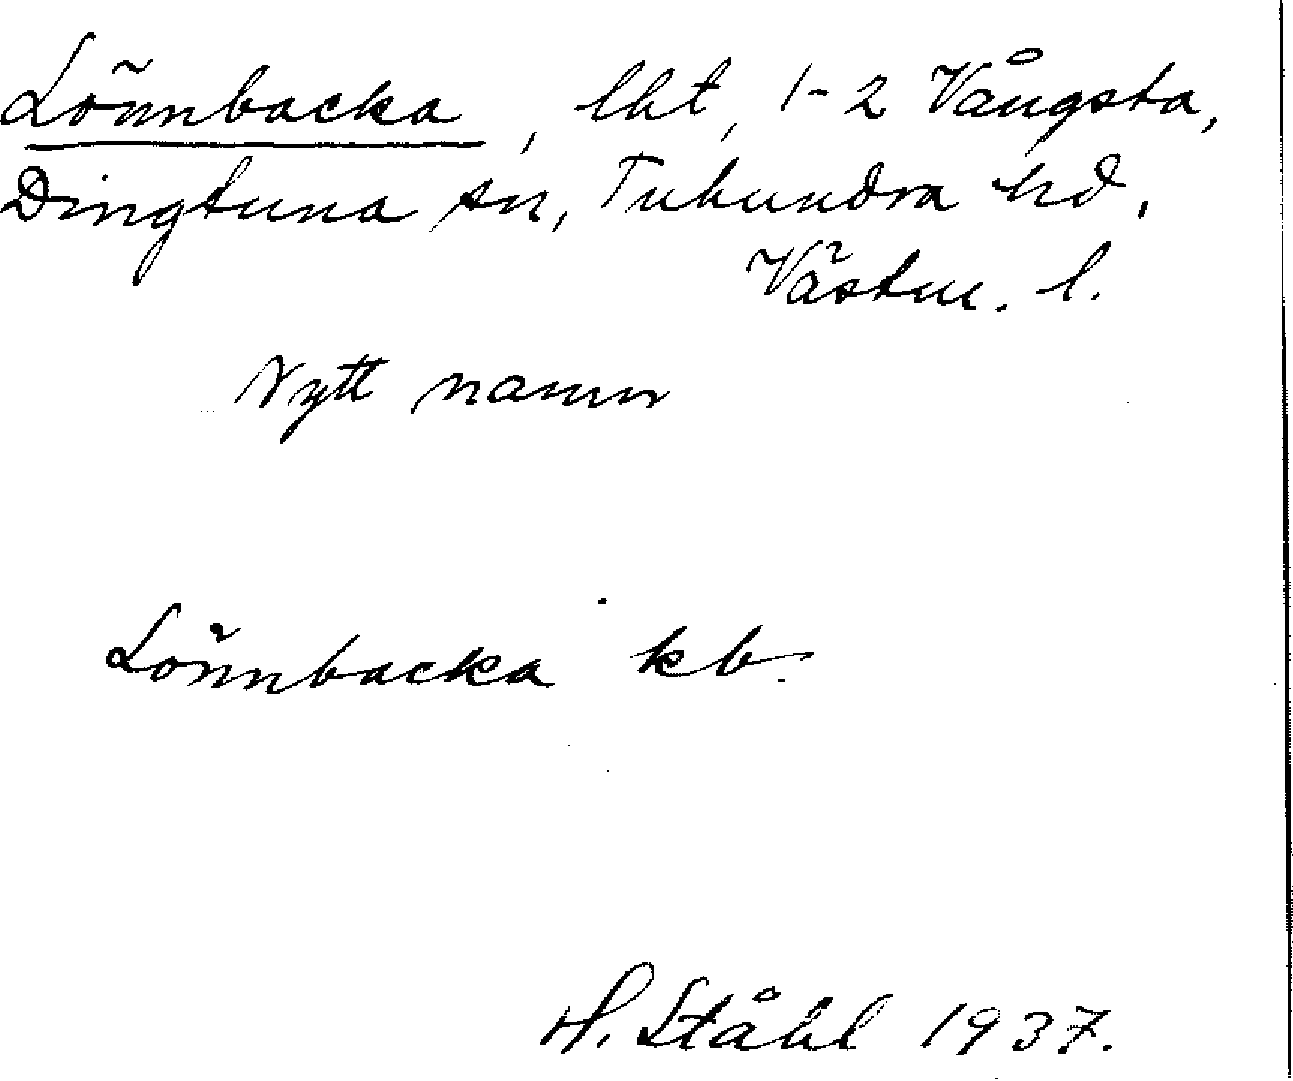 Lönnbacka, lht, 1-2 Vångsta,
Dingtuna sn, Tuhundra hd,
Västm. l.
Nytt namn
Lönnbacka kb.
H. Ståhl 1937.